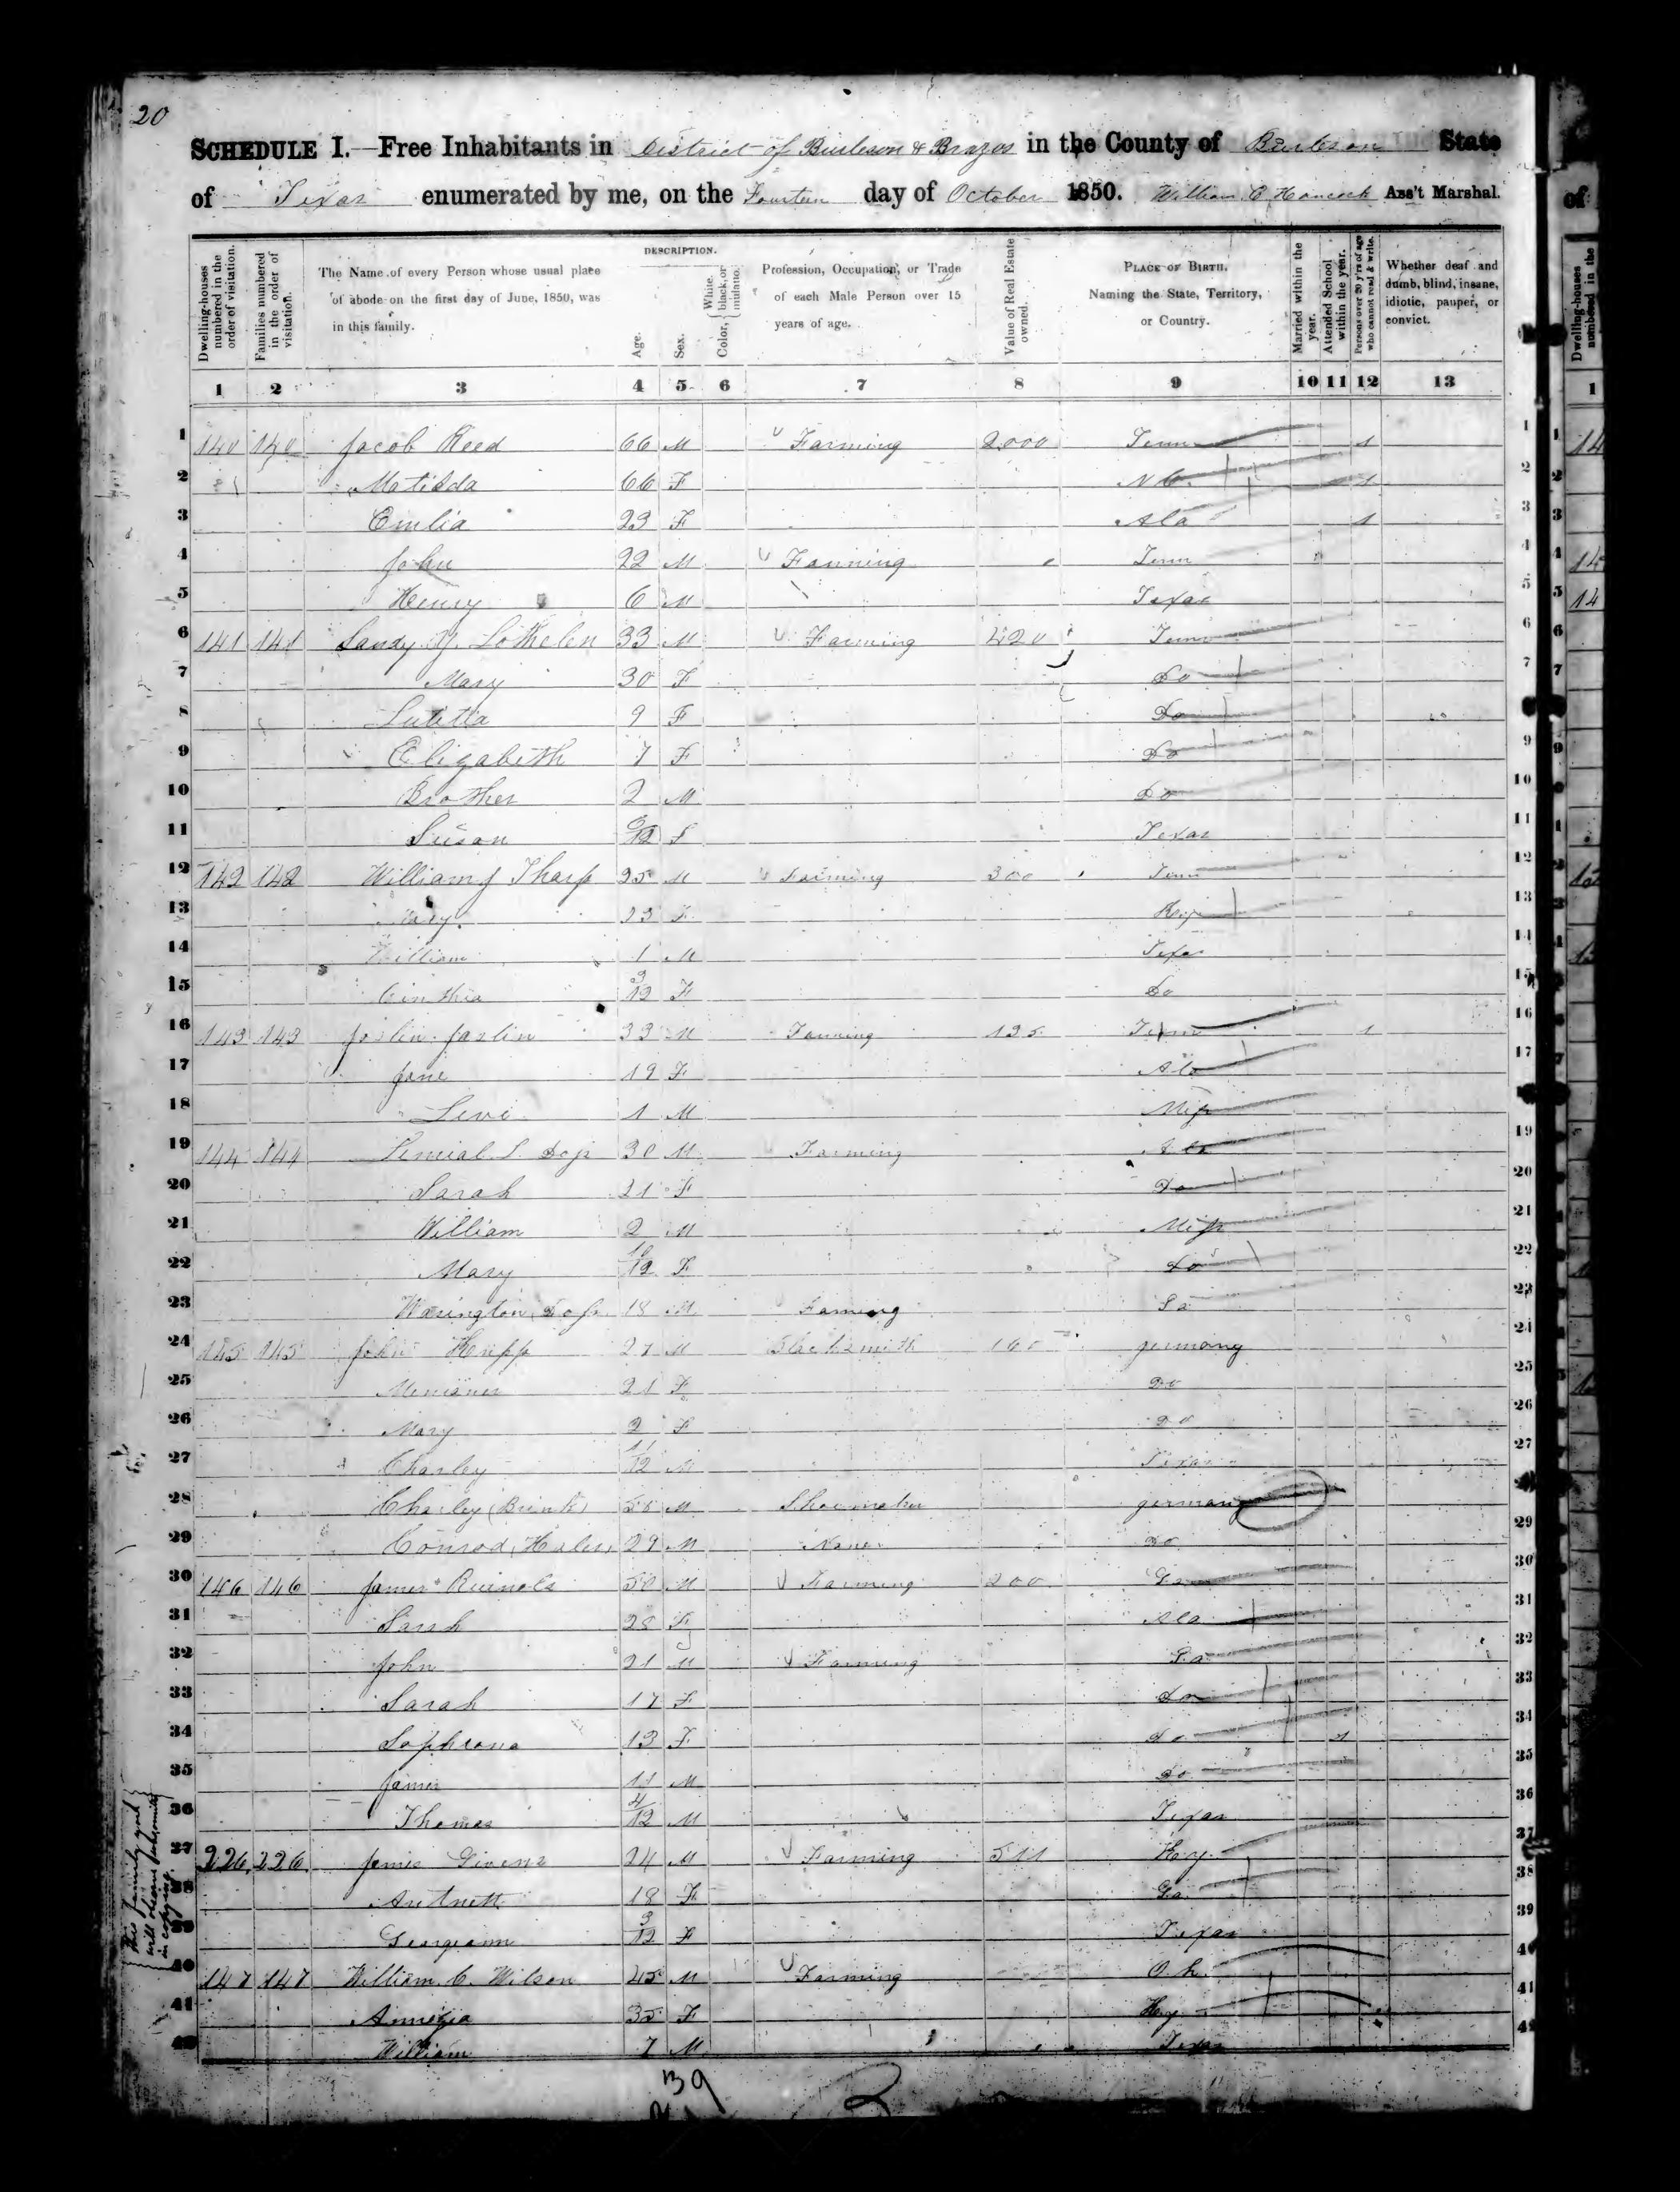 20
SCHEDULE I.—Free Inhabitants in District of Burleson & Brazos in the County of Burleson State
of Texas enumerated by me, on the Fourteen day of October 1850. William C Hancock Ass't Marshal.
Dwelling-houses numbered in the order of visitation.
Families numbered in the order of visitation.
The Name of every Person whose usual place of abode on the first day of June, 1850, was in this family.
DESCRIPTION.
Age.
Sex.
Color, { White, black, or mulatto.
Profession, Occupation, or Trade of each Male Person over 15 years of age.
Value of Real Estate owned.
PLACE OF BIRTH. Naming the State, Territory, or Country.
Married within the year.
Attended School within the year.
Persons over 20 y'rs of age who cannot read & write.
Whether deaf and dumb, blind, insane, idiotic, pauper, or convict.
1 2 3 4 5 6 7 8 9 10 11 12 13
1 140 140 Jacob Reed 66 M Farming 2,000 Tenn 1 1
2 Matilda 66 F N C. 1 2
3 Emilia 23 F Ala 1 3
4 John 22 M Farming Tenn 4
5 Henry 6 M Texas 5
6 141 141 Sandy 33 M Farming Tenn 6
7 Mary 30 F Do 7
8 9 F Do
9 Elizabeth 7 F Do 9
10 Brother 2 M Do 10
11 Susan /12 F Texas 11
12 142 142 William J Tharp 25 M Farming 300 Tenn 12
13 Mary 23 F Key 13
14 William 1 M Texas 14
15 Cinthia 3/12 F Do 15
16 143 143 Joslin Joslin 33 M Farming 125 Tenn 1 16
17 Jane 19 F Ala 17
18 Levi 1 M Miss
19 144 144 30 M Farming Ala 19
20 Sarah 21 F Do 20
21 William 2 M Miss 21
22 Mary 10/12 F Do 22
23 18 M Farming 23
24 145 145 John Hupp 27 M Blacksmith 160 germany 24
25 21 F Do 25
26 Mary 2 F Do 26
27 Charley 11/12 M Texas 27
28 Charley (Brink) 55 M Shoemaker germany
29 Conrod 29 M None Do 29
30 146 146 James Ruinols 50 M Farming 200 Ga 30
31 Sarah 28 F Ala 31
32 John 21 M Farming Ga 32
33 Sarah 17 F Do 33
34 Sophrona 13 F Do 1 34
35 James 11 M Do 35
36 Thomas 4/12 M Texas 36
37 226 226 James Givens 24 M Farming 511 Key 37
38 18 F Ga 38
39 Georgeann 3/12 F Texas 39
40 147 147 William C. Wilson 45 M Farming Oh. 40
41 35 F Key 41
42 William 7 M Texas 42
this family you will observe in copying
39
2